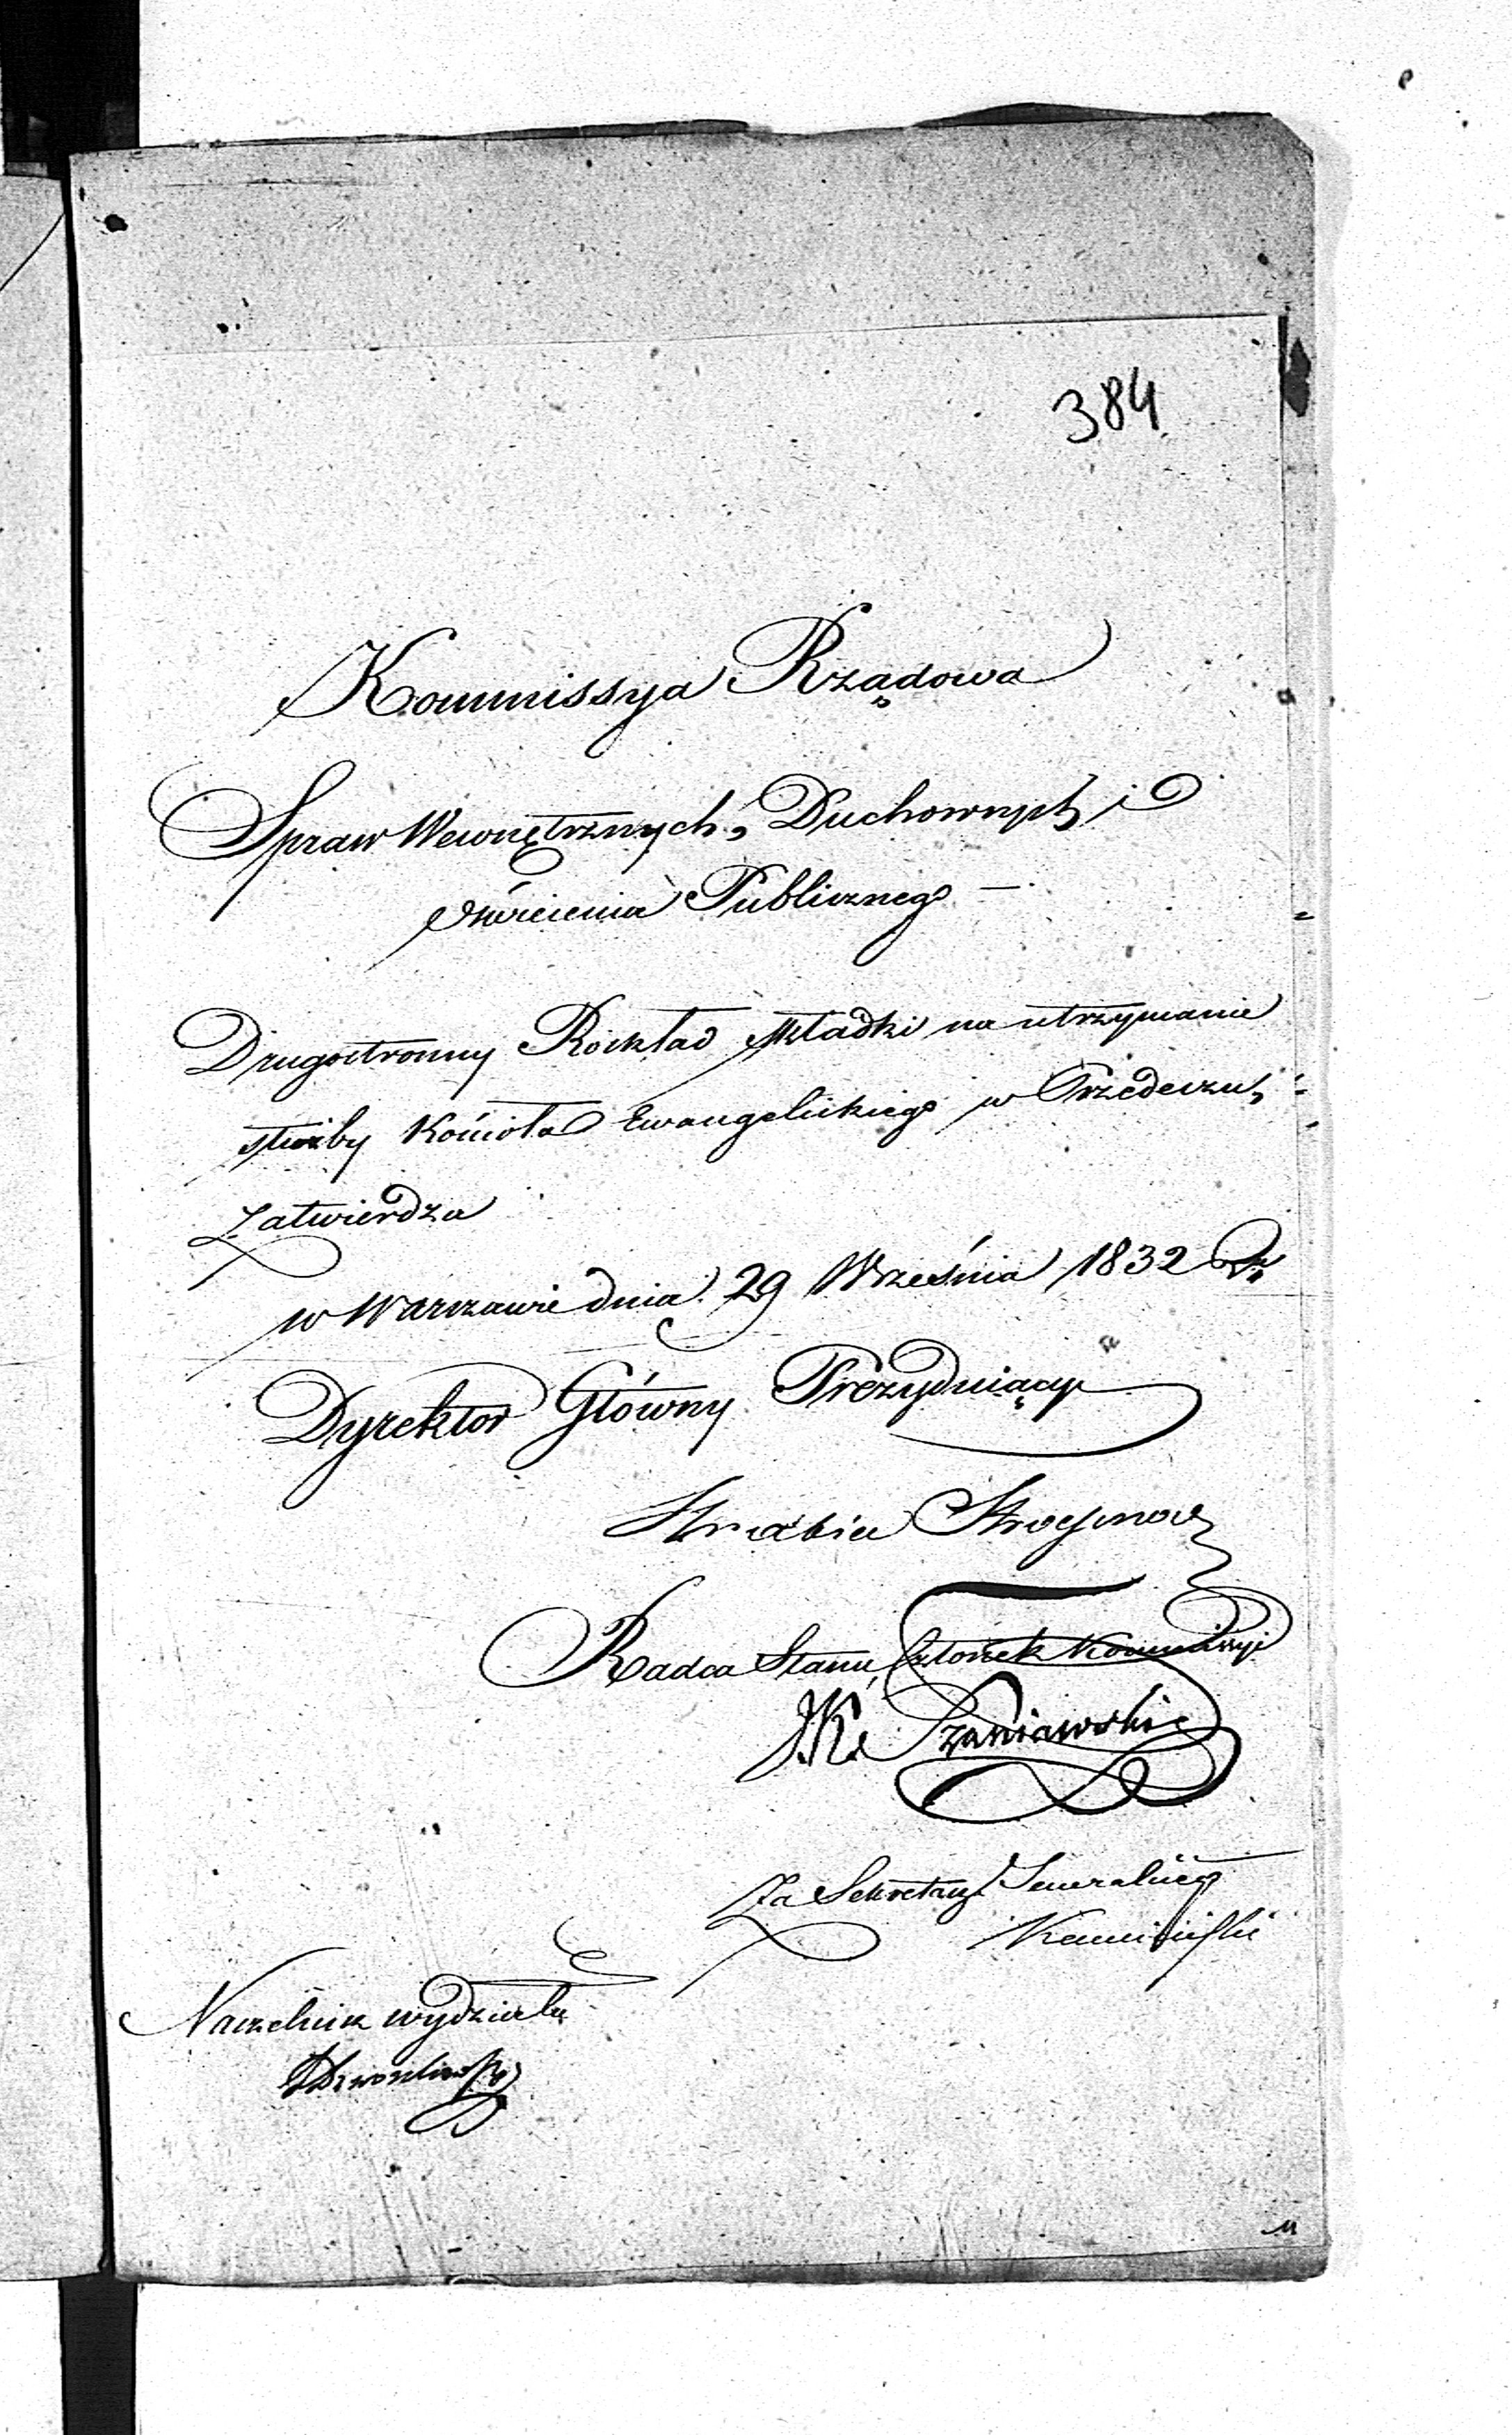 384
Kommissya Rządowa
Spraw Wewnętrznych, Duchownych i
Oświecenia Publicznego —
Drugostronny Rozkład składki na utrzymanie
służby Kościoła Ewangelickiego w Przedeczu,
Zatwierdza
w Warszawie dnia 29 Września 1832 R.
Dyrektor Główny Prezyduiący
Hrabia Strogonow
Radca Stanu, Członek Kommissyi
J. K. Szaniawski
Za Sekretarza Generalnego
Kamiński
Naczelnik wydziału